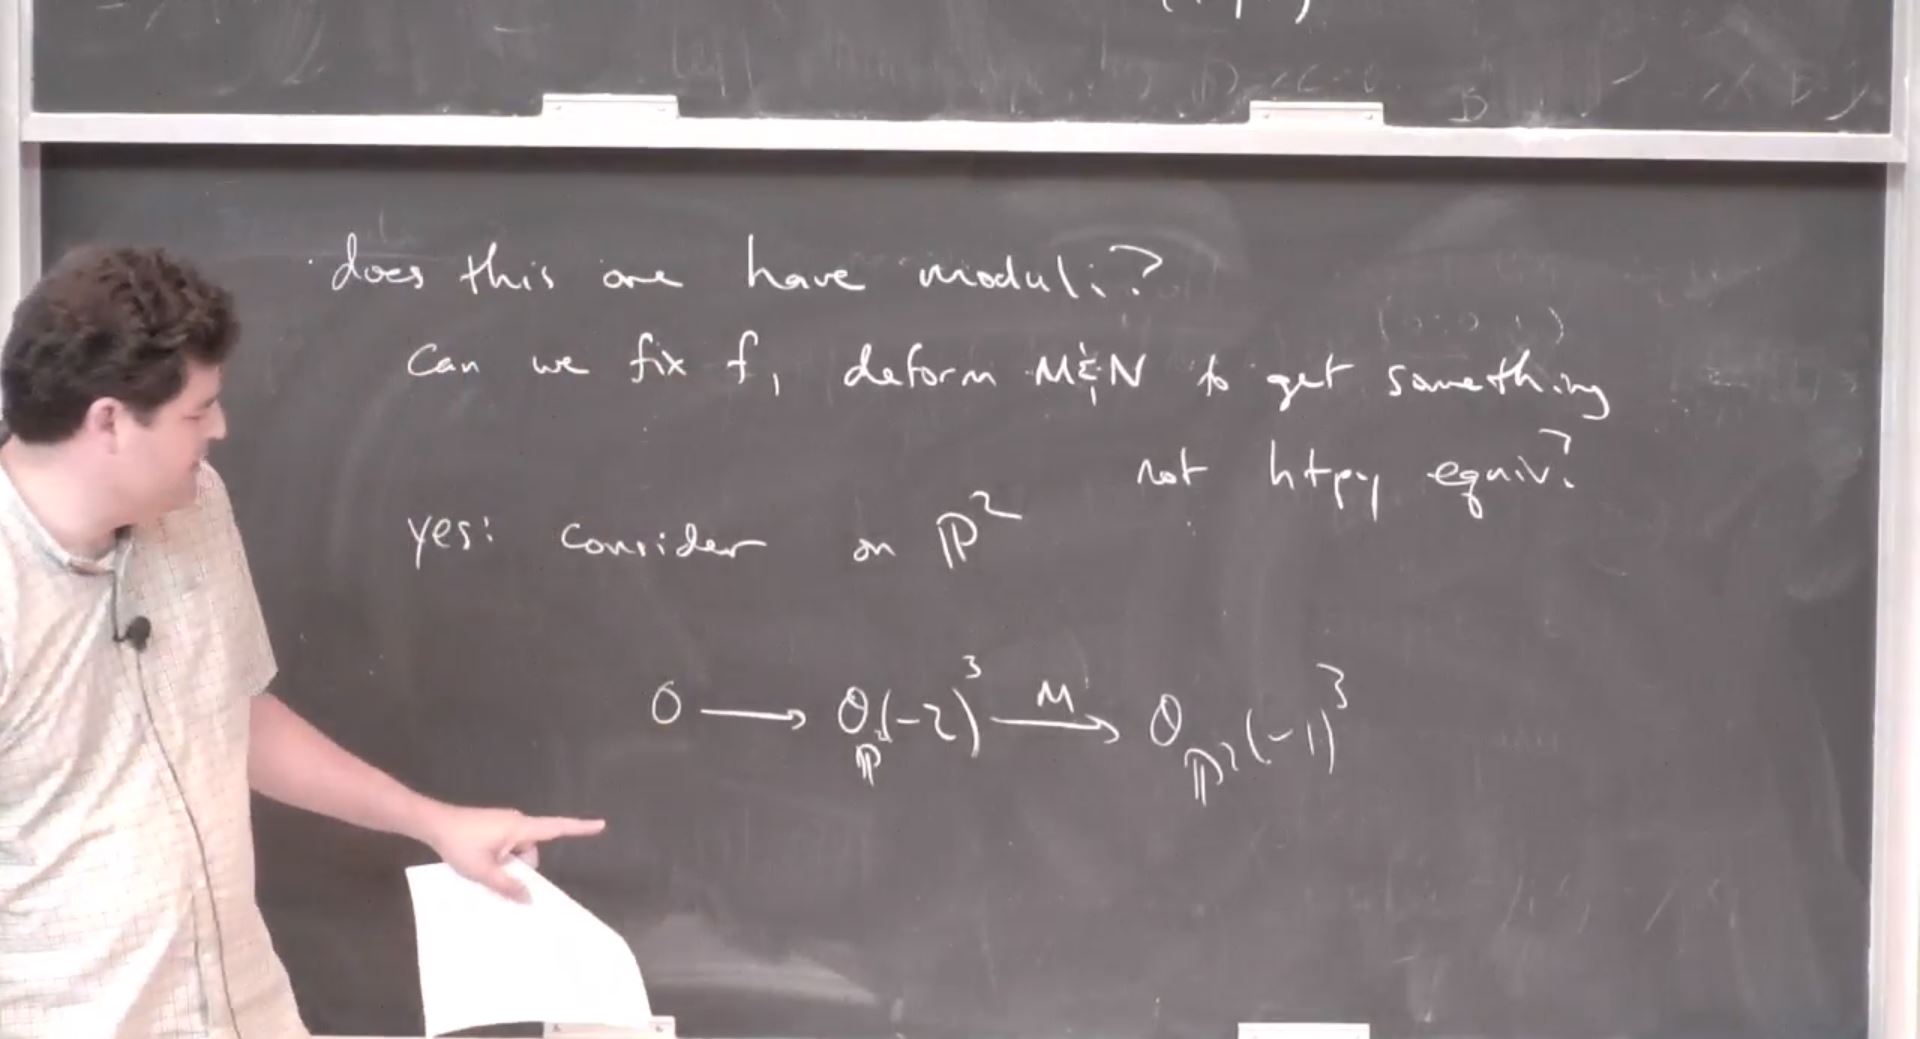 does this one have moduli?
Can we fix f, deform M & N to get something
not htpy equiv?
yes: consider on ℙ²
0 ⟶ 𝒪_ℙ²(-2)³ —M→ 𝒪_ℙ²(-1)³